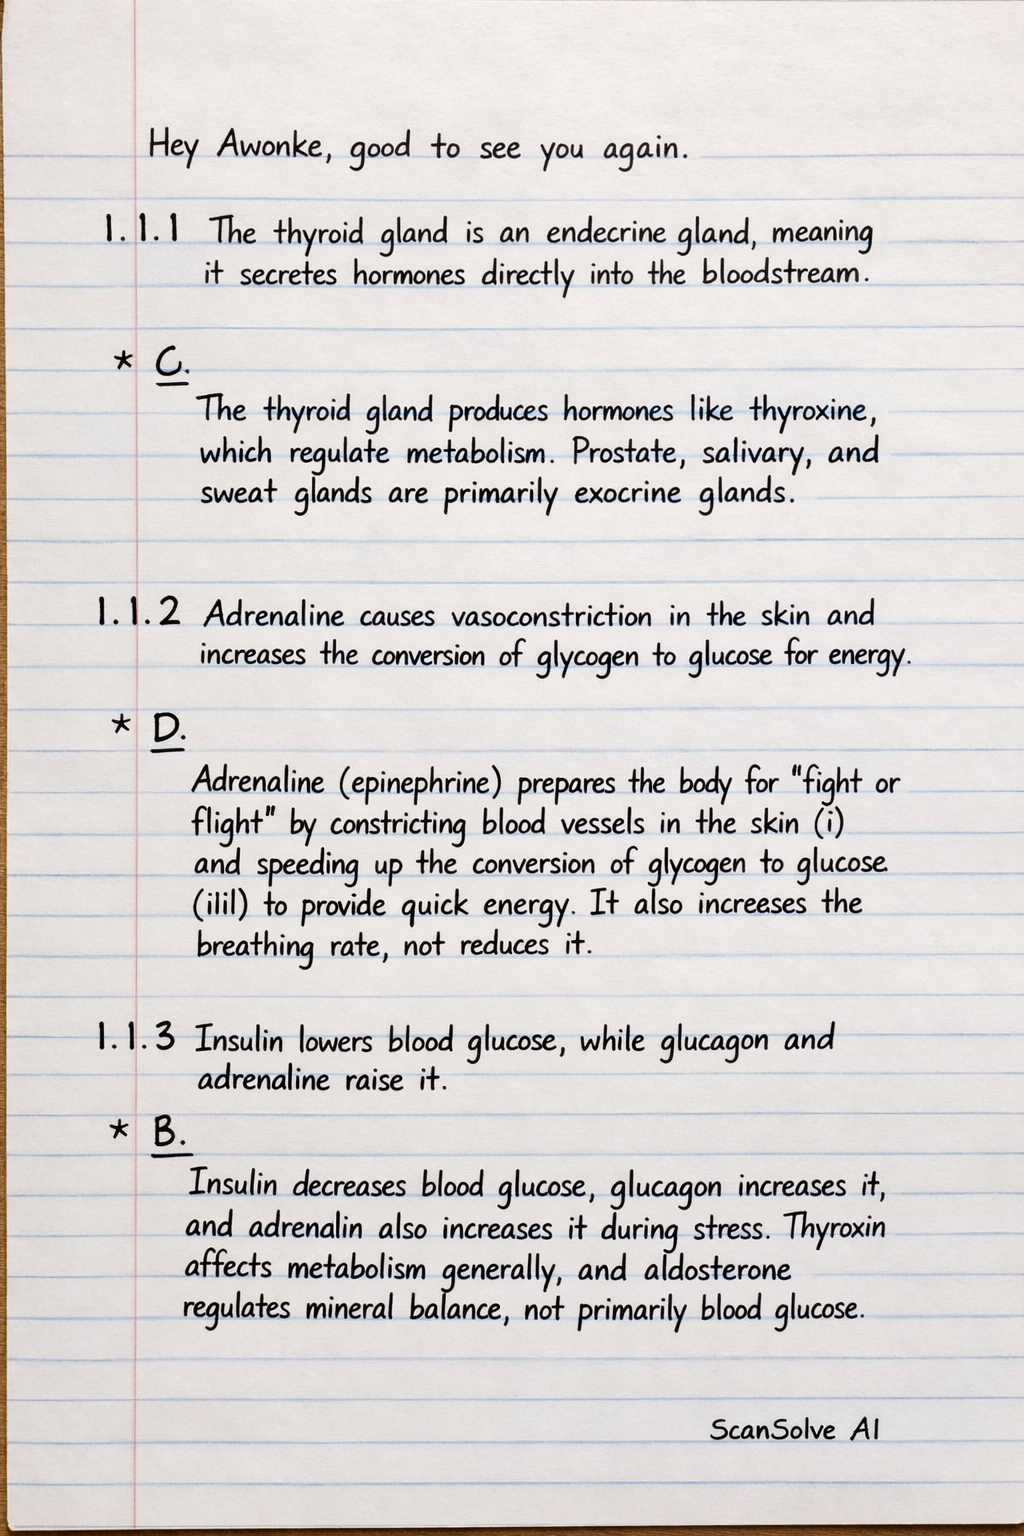 Hey Awonke, good to see you again.
1.1.1 The thyroid gland is an endecrine gland, meaning
it secretes hormones directly into the bloodstream.
* C.
The thyroid gland produces hormones like thyroxine,
which regulate metabolism. Prostate, salivary, and
sweat glands are primarily exocrine glands.
1.1.2 Adrenaline causes vasoconstriction in the skin and
increases the conversion of glycogen to glucose for energy.
* D.
Adrenaline (epinephrine) prepares the body for "fight or
flight" by constricting blood vessels in the skin (i)
and speeding up the conversion of glycogen to glucose
(ilil) to provide quick energy. It also increeses the
breathing rate, not reduces it.
1.1.3 Insulin lowers blood glucose, while glucagon and
adrenaline raise it.
* B.
Insulin decreases blood glucose, glucagon increases it,
and adrenalin also increases it during stress. Thyroxin
affects metabolism generally, and aldosterone
regulates mineral balance, not primarily blood glucose.
ScanSolve AI